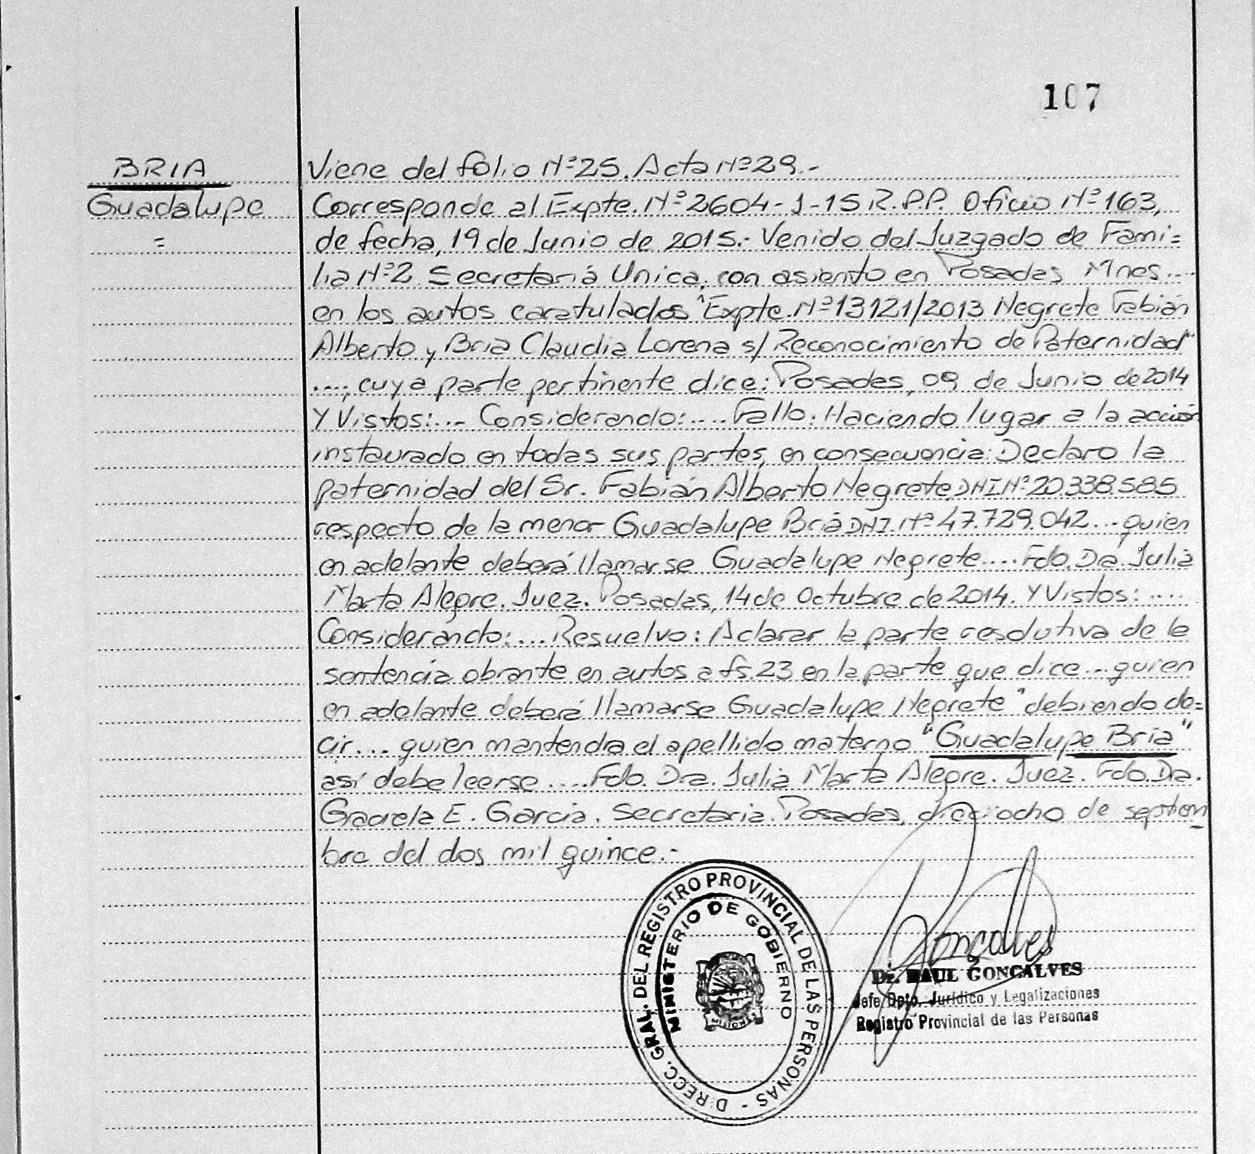 107
BRIA
Guadalupe
=
Viene del folio Nº25. Acta Nº29.-
Corresponde al Expte. Nº2604-J-15 R.P.P. Oficio Nº163,
de fecha, 19 de Junio de 2015.- Venido del Juzgado de Fami=
lia Nº2 Secretaría Unica, con asiento en Posadas Mnes...
en los autos caratulados "Expte. Nº13121/2013 Negrete Fabián
Alberto y Bria Claudia Lorena s/ Reconocimiento de Paternidad"
...; cuya parte pertinente dice: Posadas, 09 de Junio de 2014
Y Vistos:... Considerando:.... Fallo: Haciendo lugar a la acción
instaurado en todas sus partes, en consecuencia: Declaro la
paternidad del Sr. Fabián Alberto Negrete DNI Nº 20.338.585
respecto de la menor Guadalupe Bria DNI. Nº 47.729.042... quien
en adelante deberá llamarse Guadalupe Negrete.... Fdo. Dra. Julia
Marta Alegre. Juez. Posadas, 14 de Octubre de 2014. Y Vistos:....
Considerando:.... Resuelvo: Aclarar la parte resolutiva de la
sentencia obrante en autos a fs. 23 en la parte que dice... quien
en adelante deberá llamarse Guadalupe Negrete" debiendo de=
cir... quien mantendra el apellido materno "Guadalupe Bria"
así debe leerse.... Fdo. Dra. Julia Marta Alegre. Juez. Fdo. Dra.
Graciela E. Garcia. Secretaria. Posadas, dieciocho de septiem-
bre del dos mil quince.-
DIRECC. GRAL. DEL REGISTRO PROVINCIAL DE LAS PERSONAS -
MINISTERIO DE GOBIERNO
MISIONES
Gonçalves
Dr. RAUL GONCALVES
Jefe Dpto. Jurídico y Legalizaciones
Registro Provincial de las Personas